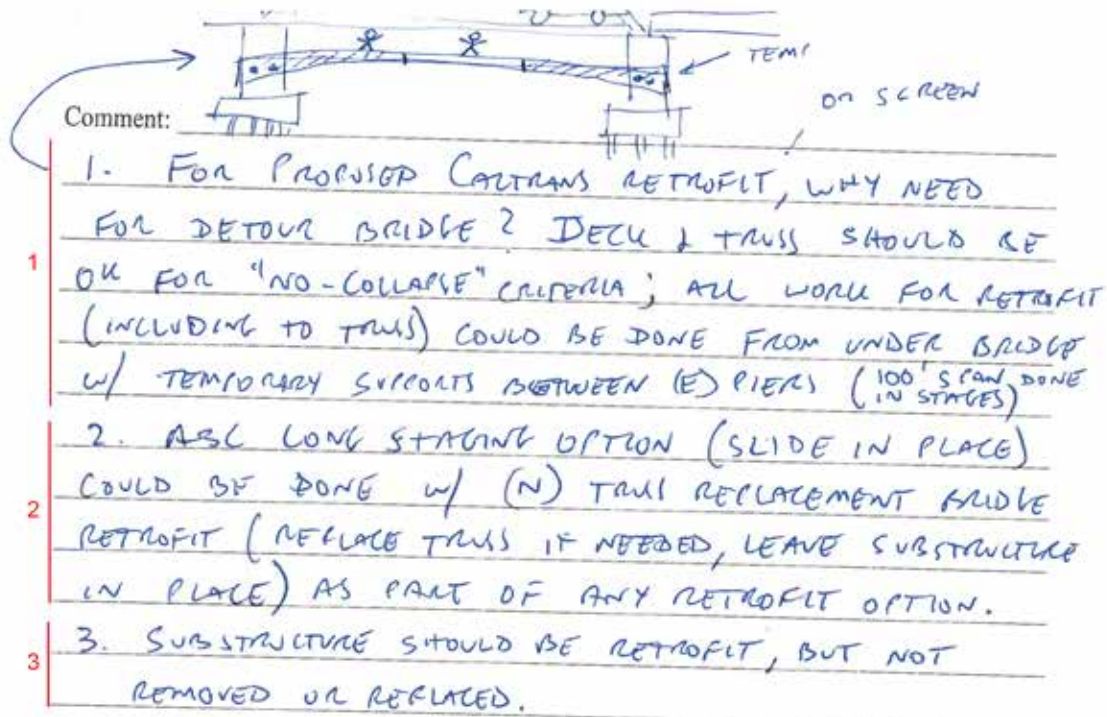 TEMP
on SCREEN
Comment:
1. FOR PROPOSED CALTRANS RETROFIT, WHY NEED
FOR DETOUR BRIDGE? DECK & TRUSS SHOULD BE
1
OK FOR "NO-COLLAPSE" CRITERIA; ALL WORK FOR RETROFIT
(INCLUDING TO TRUSS) COULD BE DONE FROM UNDER BRIDGE
W/ TEMPORARY SUPPORTS BETWEEN (E) PIERS (100' SPAN, DONE IN STAGES)
2. ABC LONG STAGING OPTION (SLIDE IN PLACE)
COULD BE DONE W/ (N) TRUSS REPLACEMENT BRIDGE
2
RETROFIT (REPLACE TRUSS IF NEEDED, LEAVE SUBSTRUCTURE
IN PLACE) AS PART OF ANY RETROFIT OPTION.
3. SUBSTRUCTURE SHOULD BE RETROFIT, BUT NOT
3
REMOVED OR REPLACED.